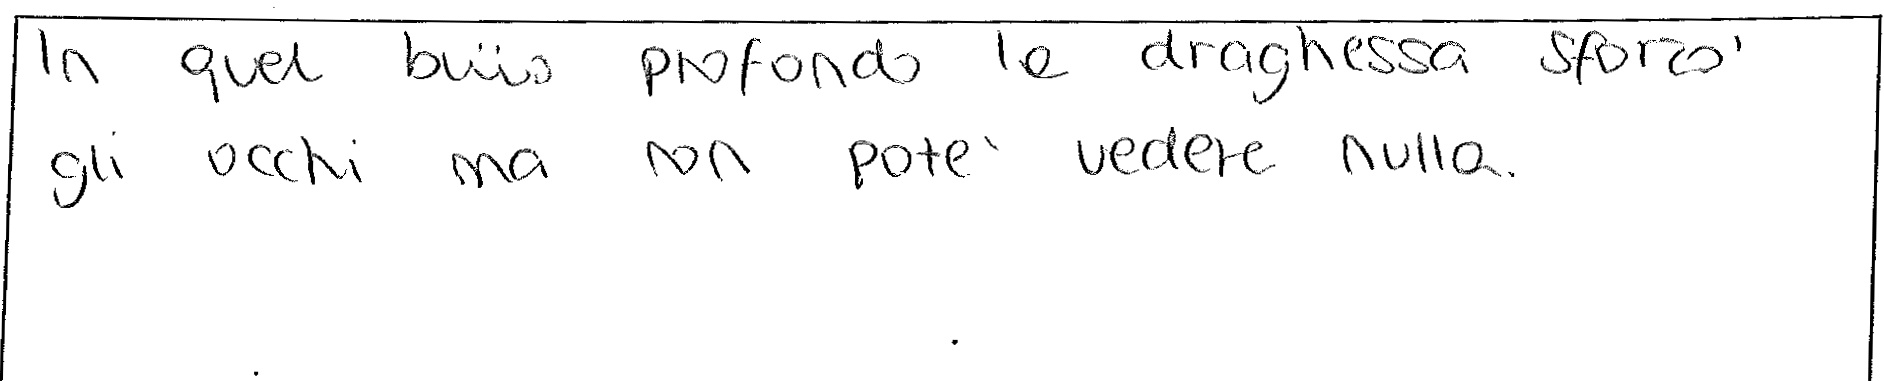 In quel buio profondo la draghessa sforzo'
gli occhi ma non pote` vedere nulla.